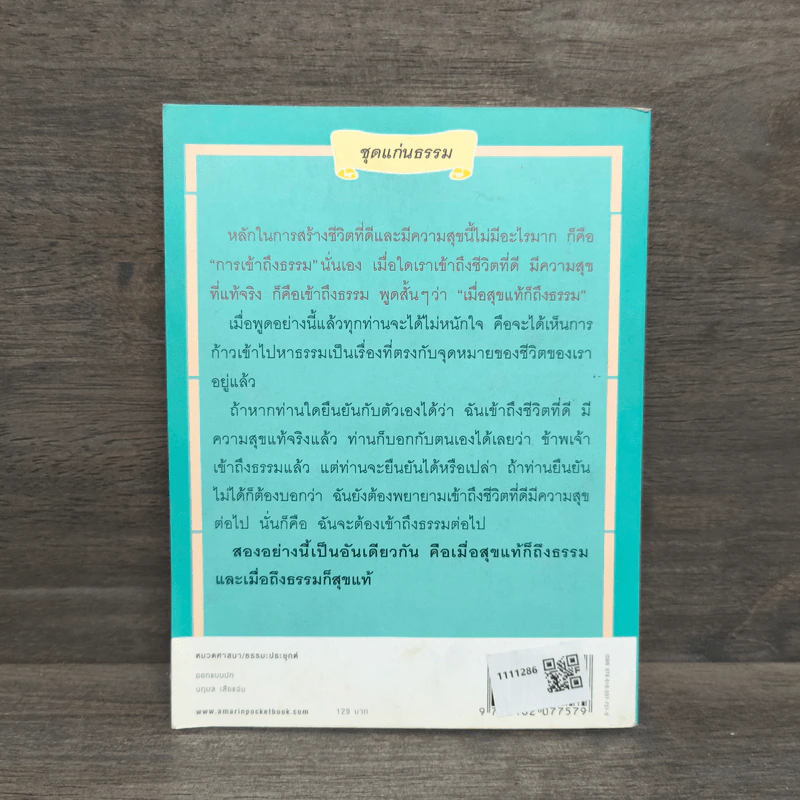 ชุดแก่นธรรม
หลักในการสร้างชีวิตที่ดีและมีความสุขนี้ไม่มีอะไรมาก ก็คือ
"การเข้าถึงธรรม" นั่นเอง เมื่อใดเราเข้าถึงชีวิตที่ดี มีความสุข
ที่แท้จริง ก็คือเข้าถึงธรรม พูดสั้นๆว่า "เมื่อสุขแท้ก็ถึงธรรม"
เมื่อพูดอย่างนี้แล้วทุกท่านจะได้ไม่หนักใจ คือจะได้เห็นการ
ก้าวเข้าไปหาธรรมเป็นเรื่องที่ตรงกับจุดหมายของชีวิตของเรา
อยู่แล้ว
ถ้าหากท่านใดยืนยันกับตัวเองได้ว่า ฉันเข้าถึงชีวิตที่ดี มี
ความสุขแท้จริงแล้ว ท่านก็บอกกับตนเองได้เลยว่า ข้าพเจ้า
เข้าถึงธรรมแล้ว แต่ท่านจะยืนยันได้หรือเปล่า ถ้าท่านยืนยัน
ไม่ได้ก็ต้องบอกว่า ฉันยังต้องพยายามเข้าถึงชีวิตที่ดีมีความสุข
ต่อไป นั่นก็คือ ฉันจะต้องเข้าถึงธรรมต่อไป
สองอย่างนี้เป็นอันเดียวกัน คือเมื่อสุขแท้ก็ถึงธรรม
และเมื่อถึงธรรมก็สุขแท้
หมวดศาสนา/ธรรมะประยุกต์
ออกแบบปก
นฤมล เสือแจ่ม
www.amarinpocketbook.com 129 บาท
1111286
077579